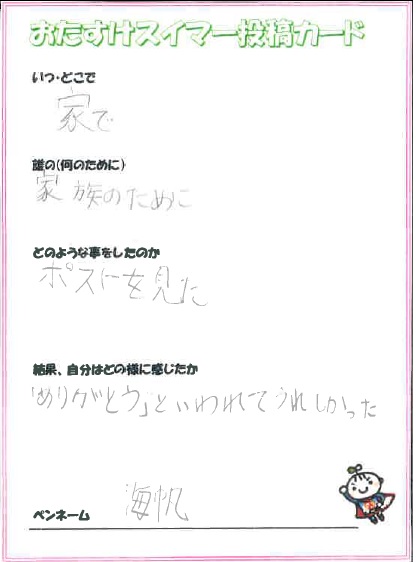 おたすけスイマー投稿カード
いつ・どこで
家で
誰の(何のために)
家族のために
どのような事をしたのか
ポストを見た
結果、自分はどの様に感じたか
「ありがとう」といわれてうれしかった
海帆
ペンネーム